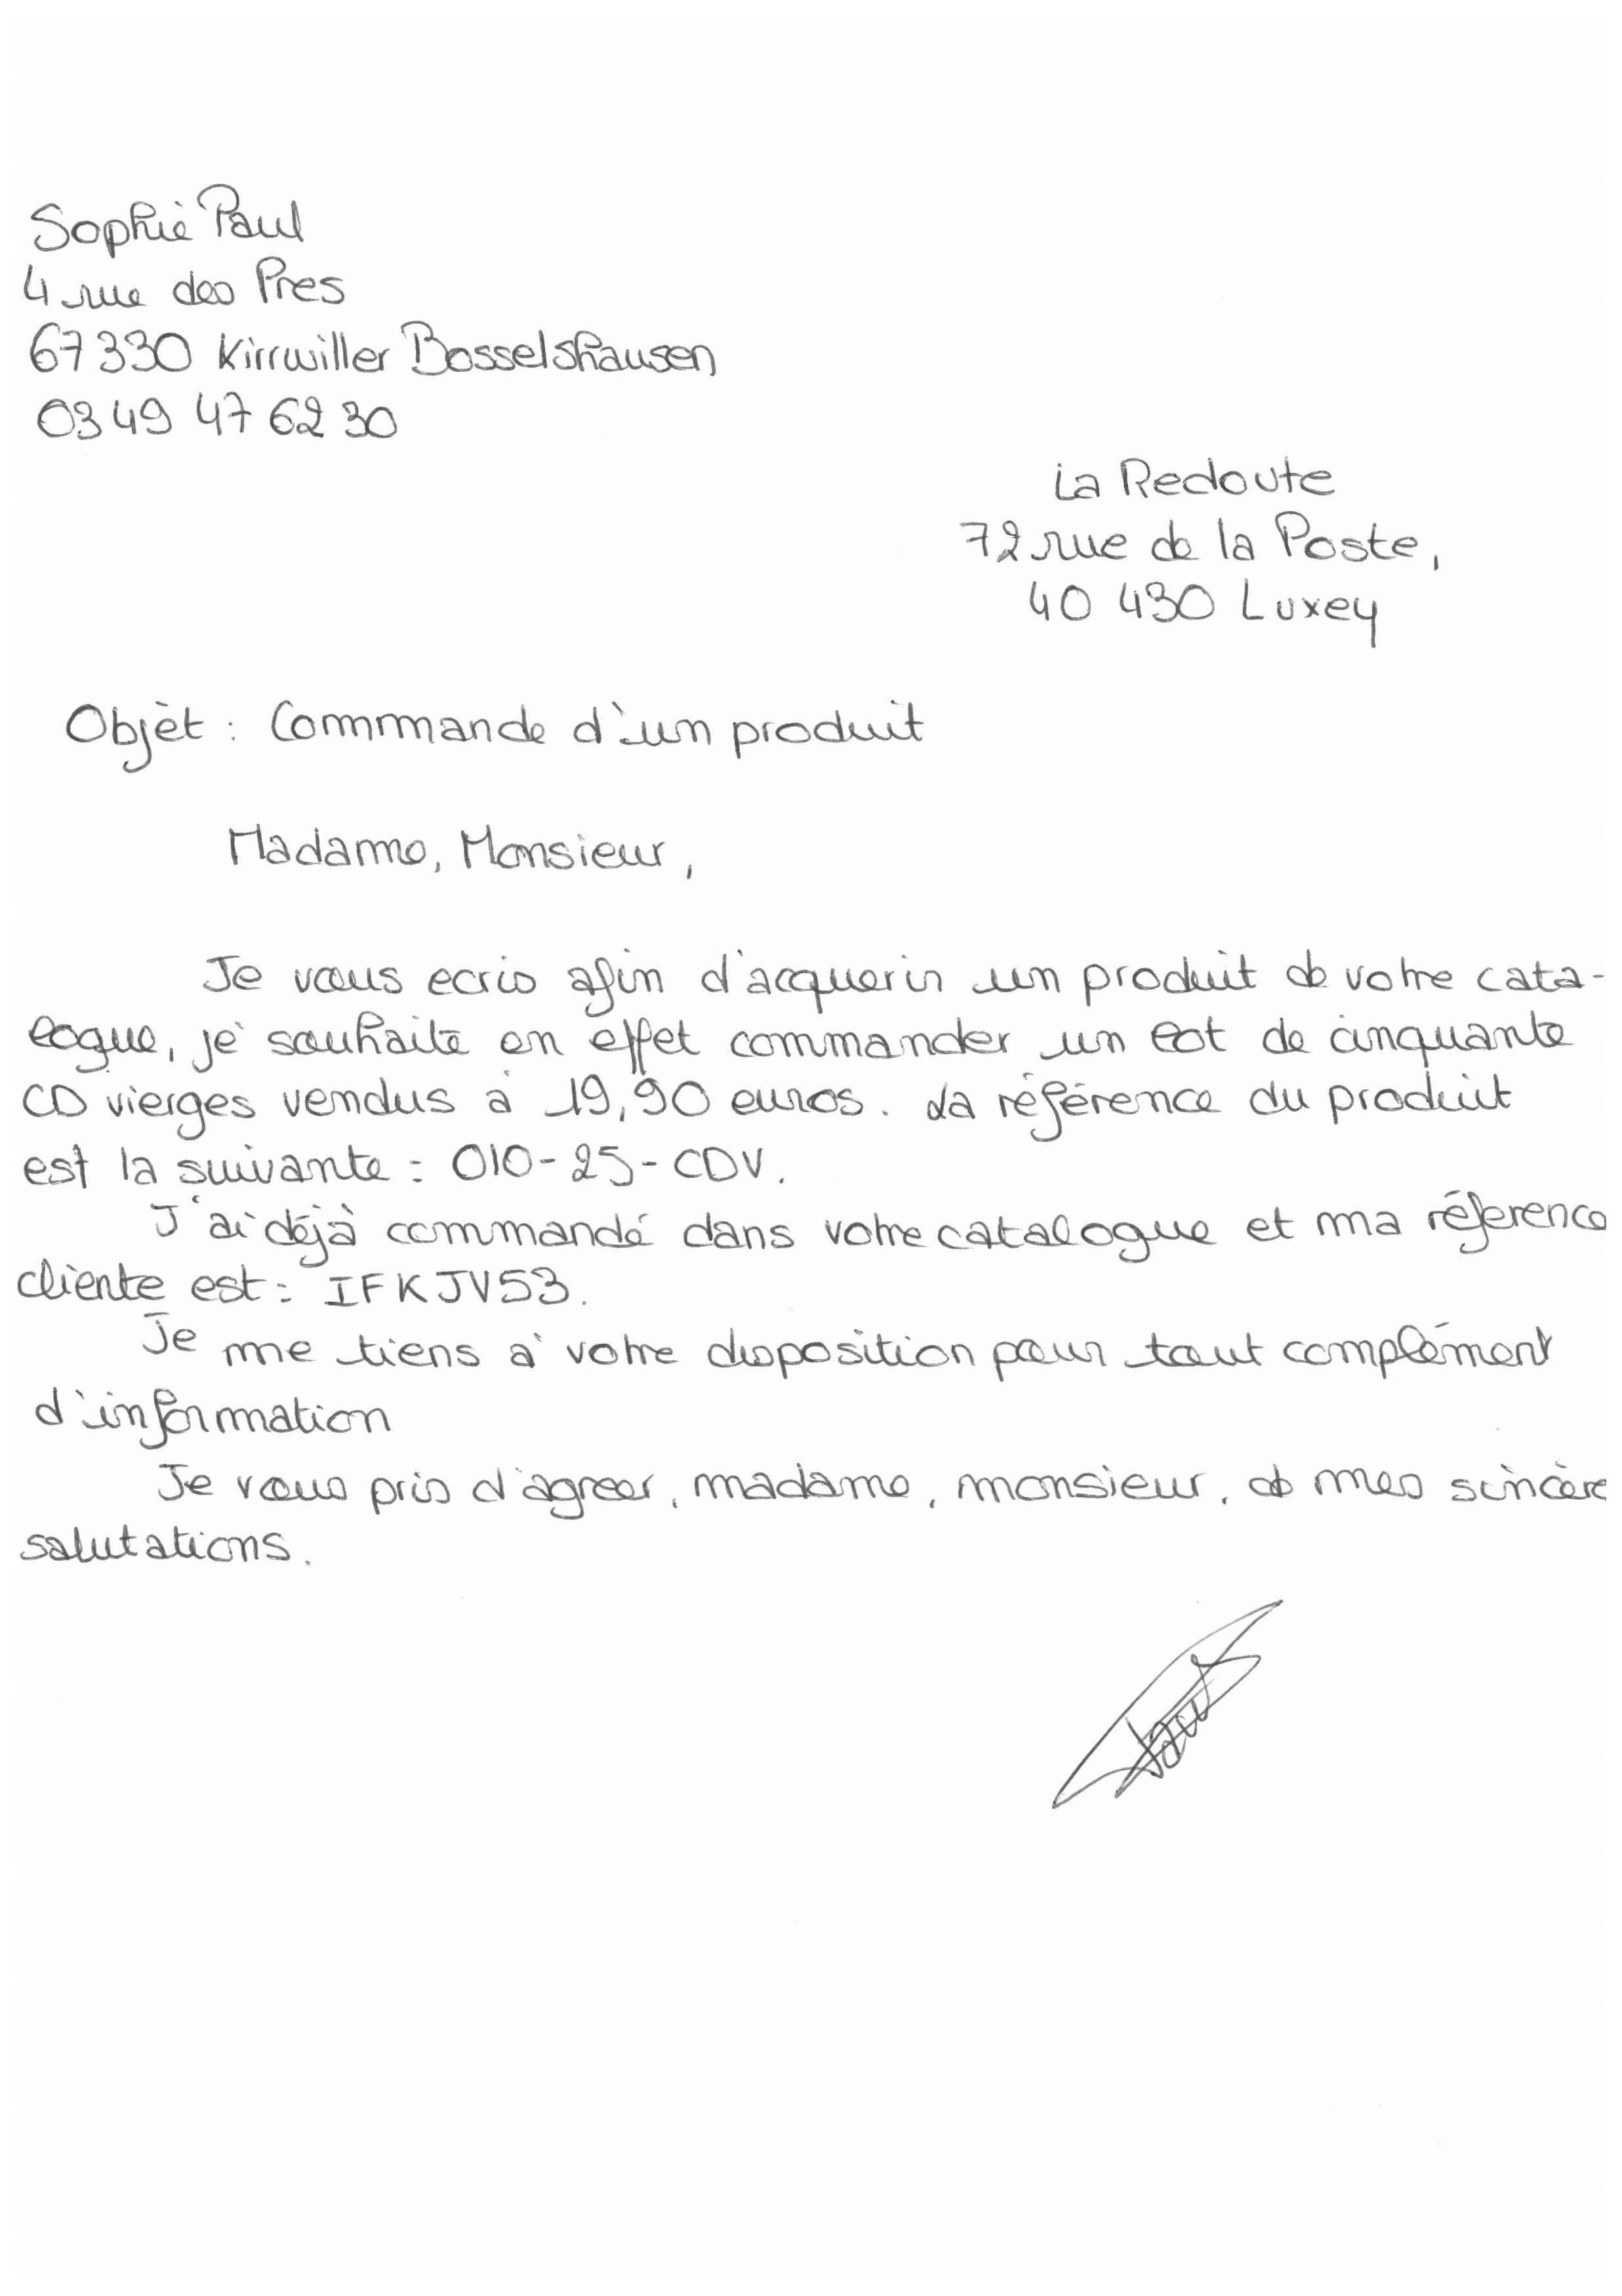 Sophie Paul
4 rue des Pres
67330 Kirrwiller Bosselshausen
03 49 47 62 30
La Redoute
72 rue de la Poste,
40 430 Luxey
Objet : Commande d'un produit
Madame, Monsieur,
Je vous ecris afin d'acquerir un produit de votre cata-
logue, je souhaite en effet commander un lot de cinquante
CD vierges vendus à 19,90 euros. La référence du produit
est la suivante : 010-25-CDV.
J'ai déjà commandé dans votre catalogue et ma réference
cliente est : IFKJV53.
Je me tiens à votre disposition pour tout complément
d'information
Je vous pris d'agreer, madame, monsieur, de mes sincère
salutations.